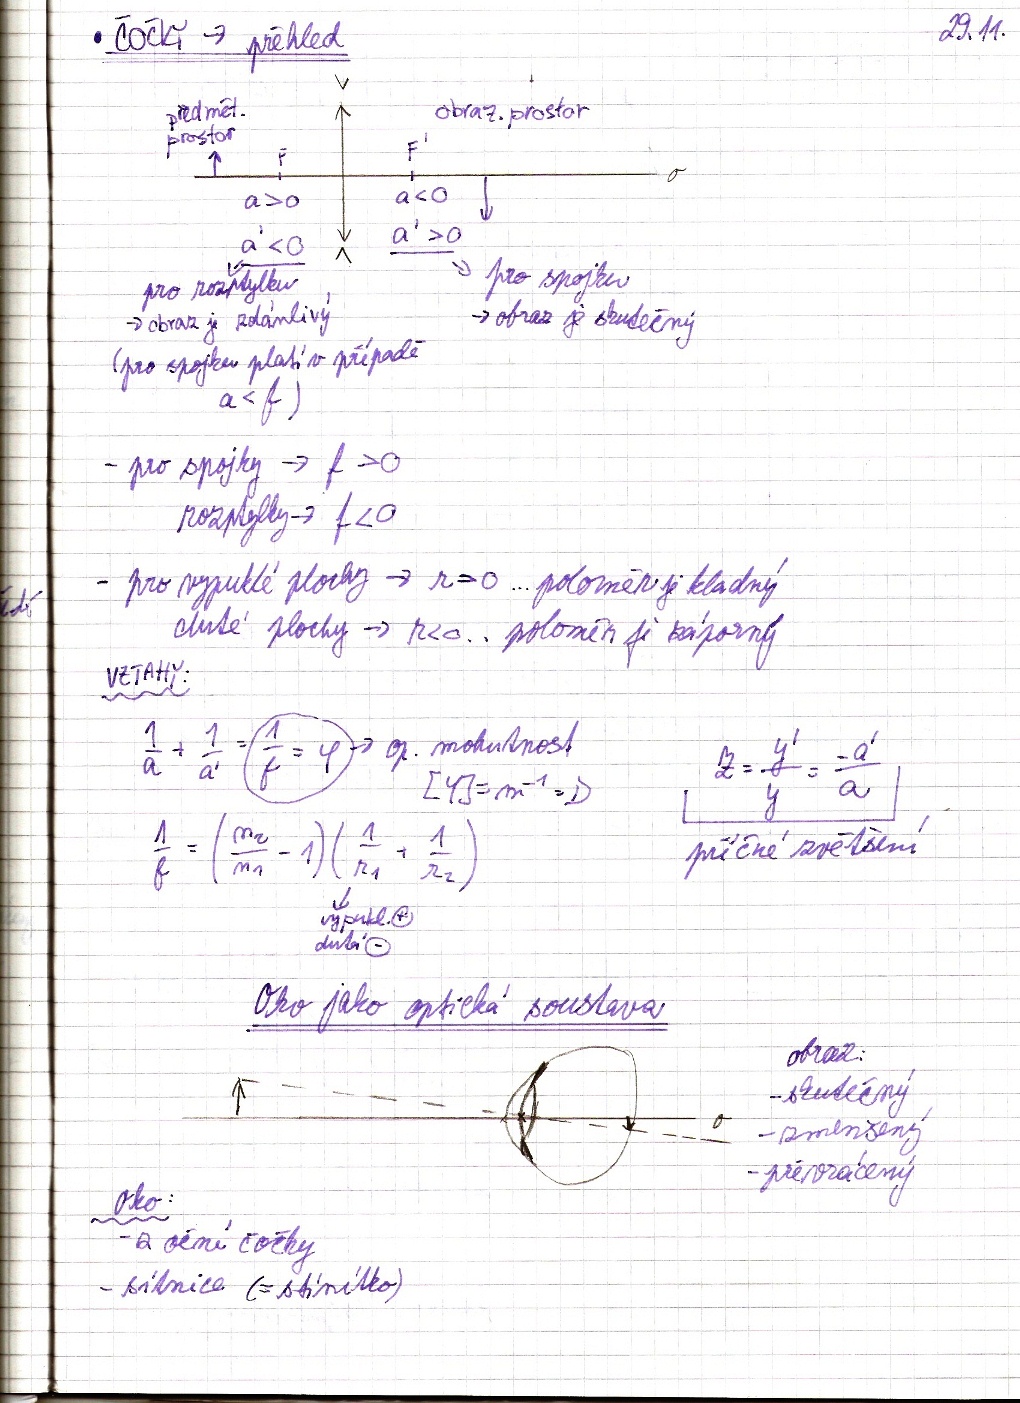 • ČOČKY → přehled
29.11.
předmět.
prostor
obraz. prostor
F
F'
o
a>0
a<0
a'<0
a'>0
pro rozptylku
→ obraz je zdánlivý
(pro spojku platí v případě
a<f)
pro spojku
→ obraz je skutečný
- pro spojky → f>0
rozptylky → f<0
- pro vypuklé plochy → r>0 ... poloměr je kladný
duté plochy → r<0.. poloměr je záporný
VZTAHY:
1/a + 1/a' = 1/f = φ → op. mohutnost
[φ] = m⁻¹ = D
Z = y'/y = -a'/a
příčné zvětšení
1/f = (n₂/n₁ - 1)(1/r₁ + 1/r₂)
vypukl. +
dutá -
Oko jako optická soustava
obraz:
- skutečný
- zmenšený
- převrácený
o
Oko:
- z oční čočky
- sítnice (= stínítko)